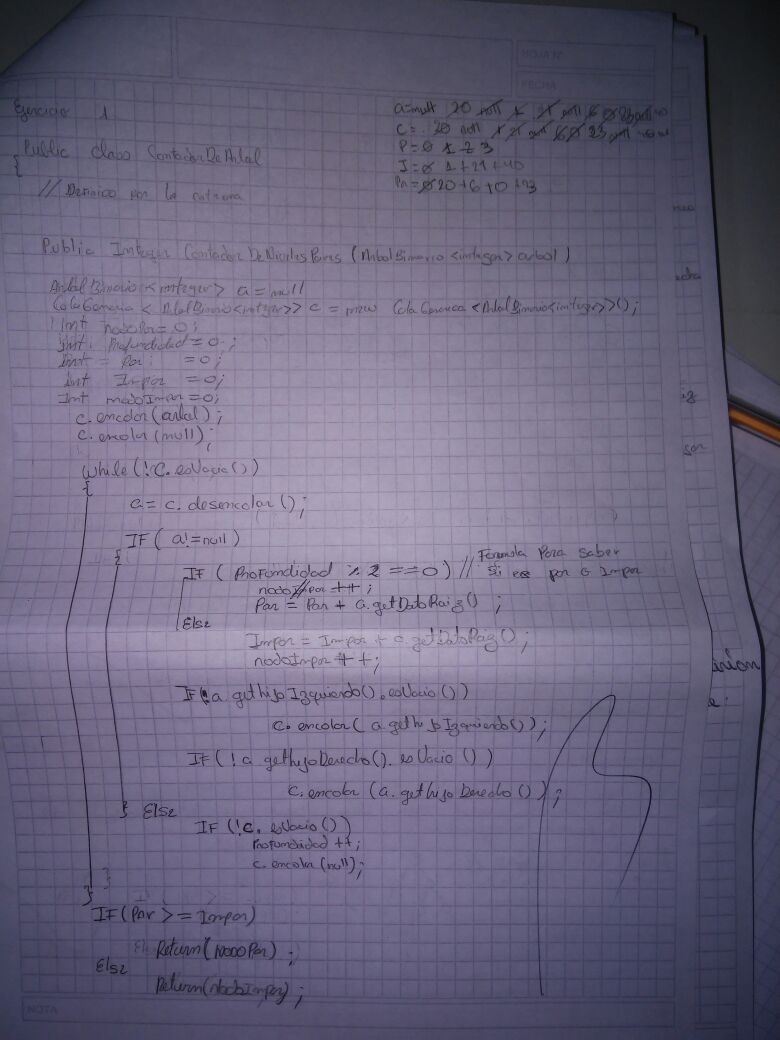 HOJA N°
FECHA
Ejercicio 1
a=null 20 null 1 21 null 6 0 23 null
C= 20 null 1 21 null 6 0 23 null
P= 0 1 2 3
I= 0 1+21+40
Pa= 0 20+6+0+23
Public class ContadorDeArbol
{
// Definido por la catedra
Public Integer ContadorDeNivelesPares (ArbolBinario<integer> arbol)
ArbolBinario<integer> a=null
ColaGenerica <ArbolBinario<integer>> c = new ColaGenerica <ArbolBinario<integer>>();
Int nodoPar=0;
Int Profundidad=0;
Int = Par =0;
Int Impar =0;
Int nodoImpar=0;
c.encolar(arbol);
c.encolar(null);
while(!C.esVacia())
{
a= c.desencolar();
IF( a!=null)
{
IF ( Profundidad % 2 ==0) // Formula Para saber
si es par o Impar
nodoPar ++;
Par = Par + a.getDatoRaiz() ;
Else
Impar = Impar + a.getDatoRaiz();
nodoImpar ++;
IF(!a.gethijoIzquierdo().esVacio())
c.encolar( a.gethijoIzquierdo());
IF(!a.gethijoDerecho().esVacio())
c.encolar (a.gethijoDerecho());
} Else
IF (!c.esVacio())
Profundidad ++;
c.encolar(null);
}
}
IF(Par >= Impar)
Return(nodoPar);
Else
Return(nodoImpar);
NOTA